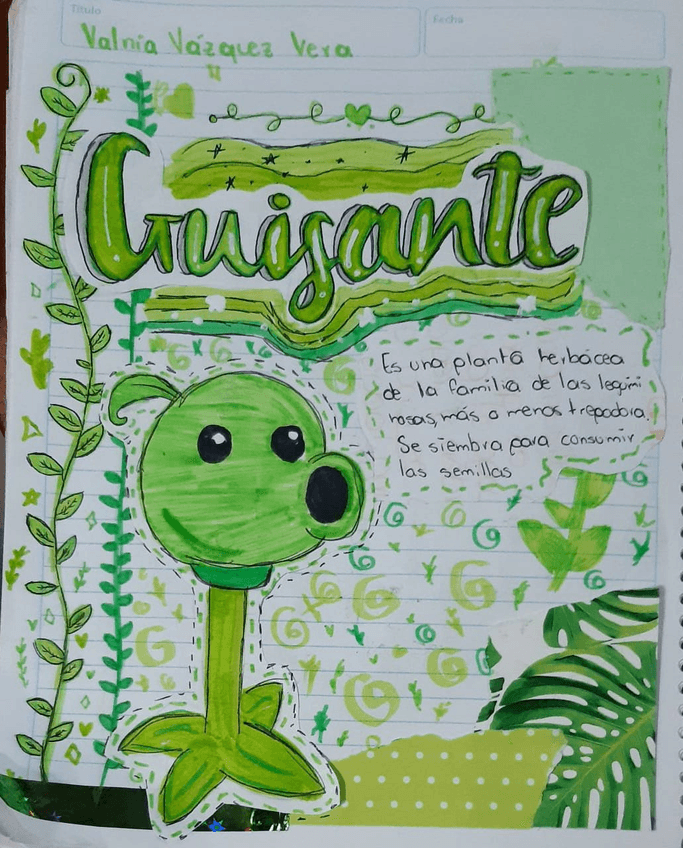 Título
Fecha
Valnia Vázquez Vera
Guisante
Es una planta herbácea
de la familia de las legumi
nosas, más o menos trepadora.
Se siembra para consumir
las semillas